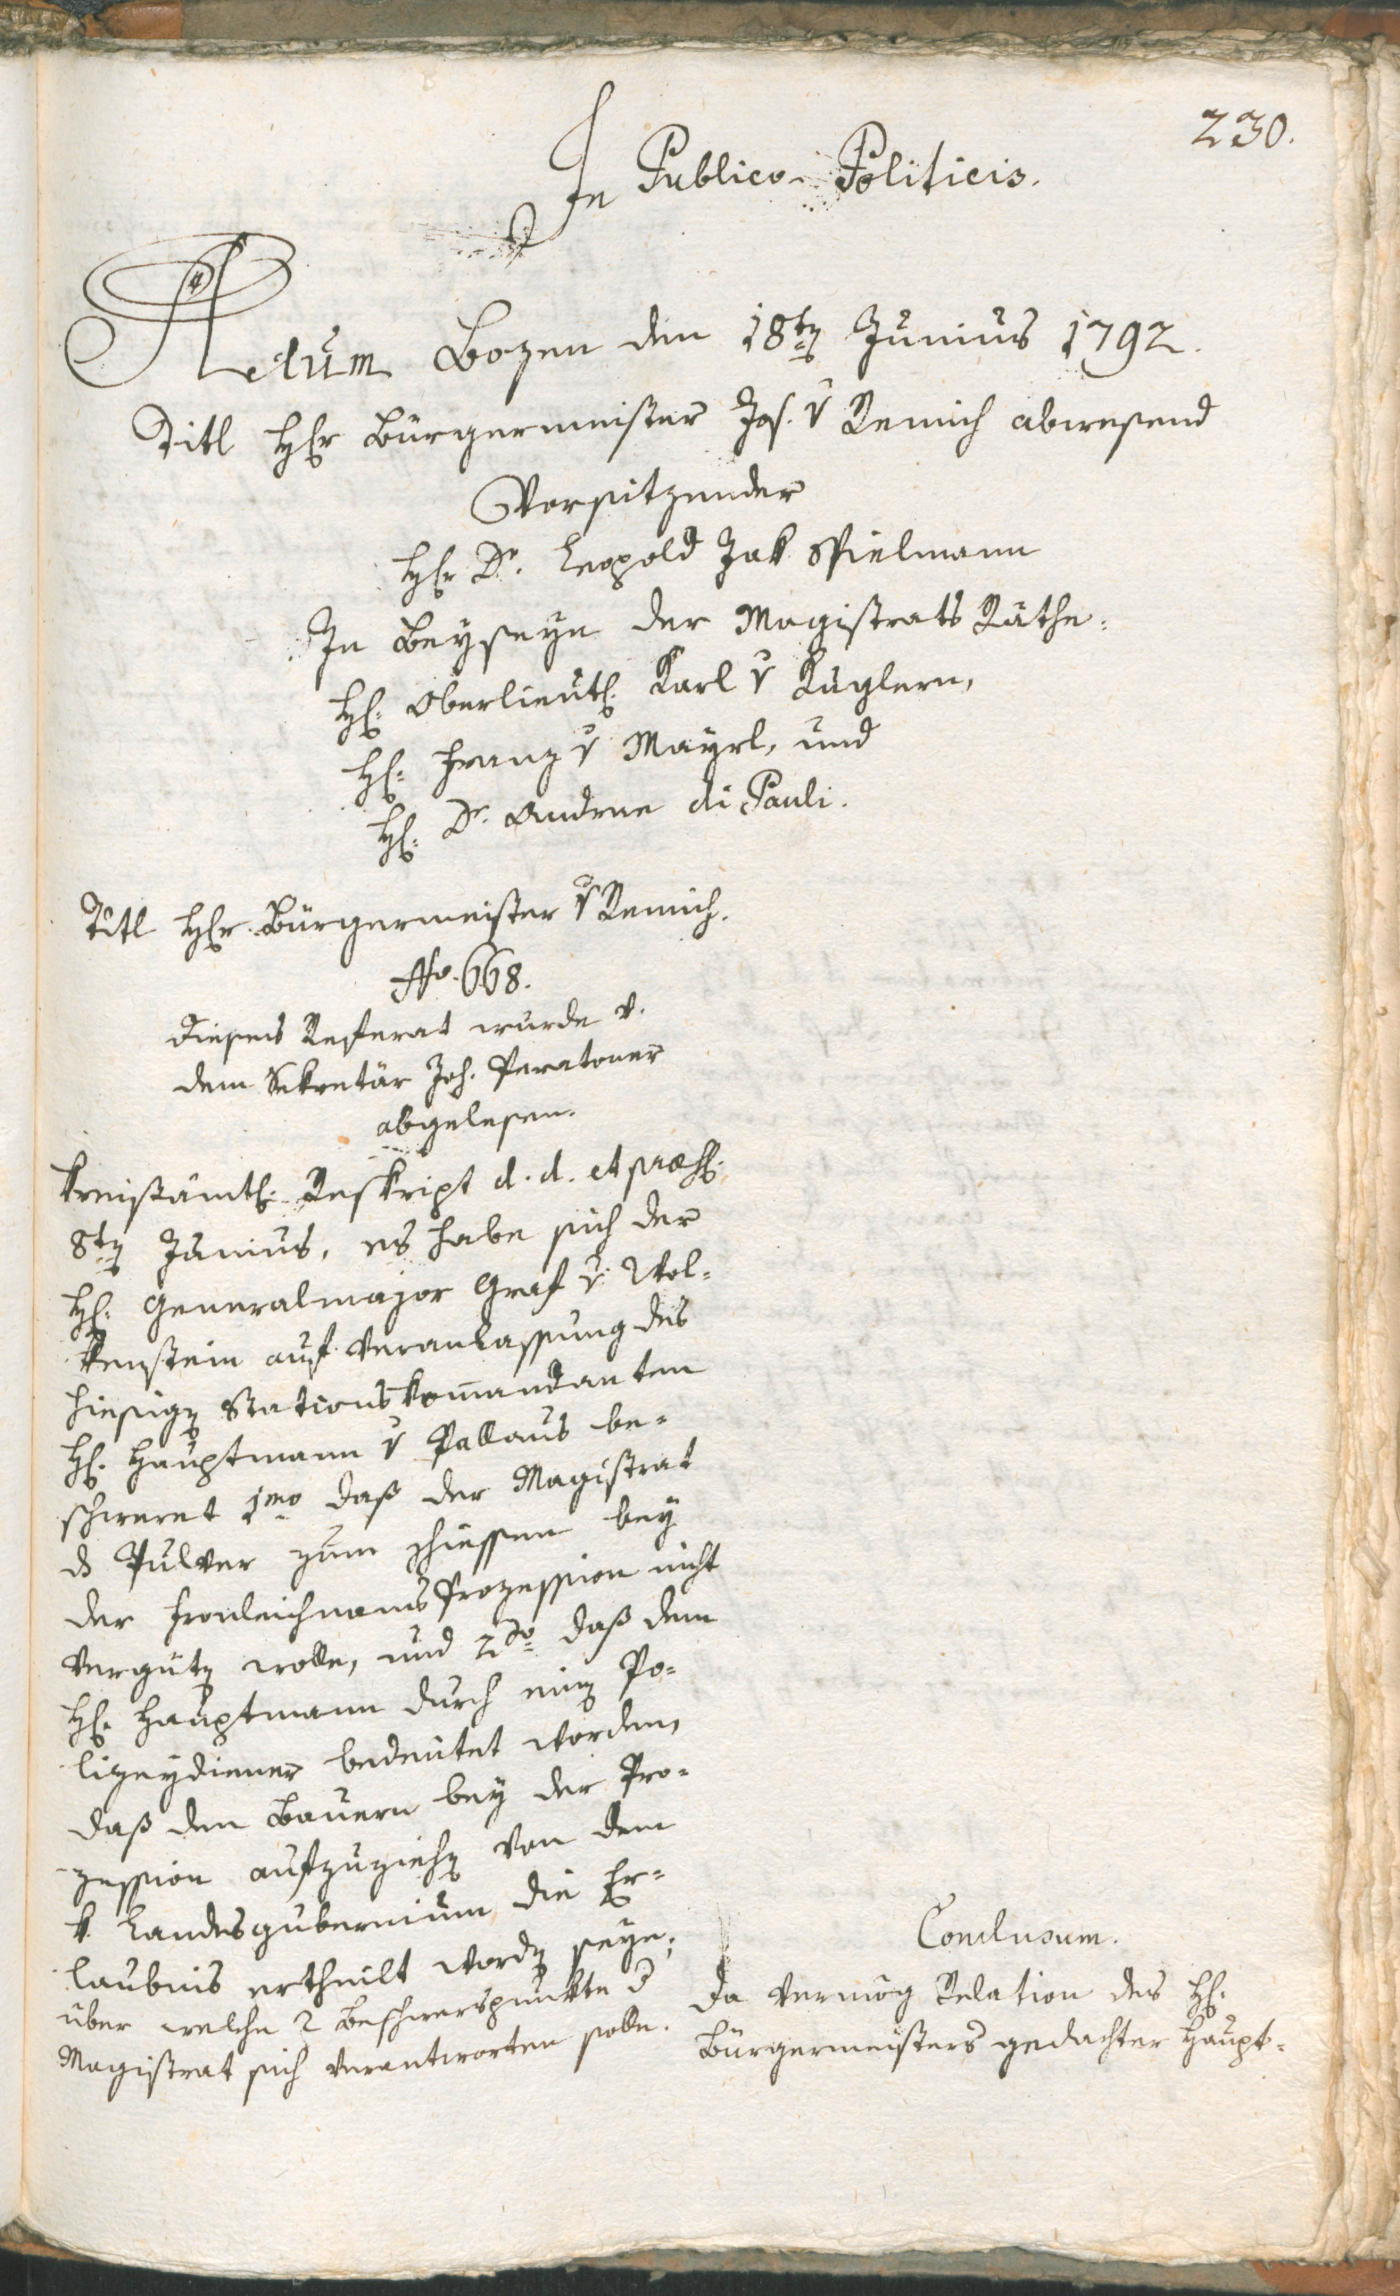 230.
In Publico-Politicis.
Actum Bozen den 18tn Junius 1792.
Titl Her Bürgermeister Jos. v Remich abwesend
Vorsitzender
Her Dr. Leopold Jak Spielmann
In Beyseyn der Magistrats Räthe:
H: Oberlieut: Karl v Kuglern,
H: Franz v Mayrl, und
H: Dr. Andree di Pauli.
Titl Her Bürgermeister v Remich.
No. 668.
Dieses Referat wurde v.
dem Sekretär Joh. Paratoner
abgelesen.
Kreisämtl: Reskript d. d. et præs:
8tn Junius, es habe sich der
H: Generalmajor Graf v. Wol-
kenstein auf Veranlassung des
hiesign Stationskomandanten
H: Hauptmann v Pallaus be-
schweret 1mo daß der Magistrat
ds Pulver zum schiessen bey
der Fronleichnams Prozession nicht
vergütn wolle, und 2do daß dem
H: Hauptmann durch einn Po-
lizeydiener bedeutet worden,
daß den Bauern bey der Pro-
zession aufzuziehn von dem
k. Landesgubernium die Er-
laubnis ertheilt wordn seye;
über welche 2 Beschwerspunkte d
Magistrat sich verantworten solle.
Conclusum.
Da vermög Relation des H:
Bürgermeisters gedachter Haupt-